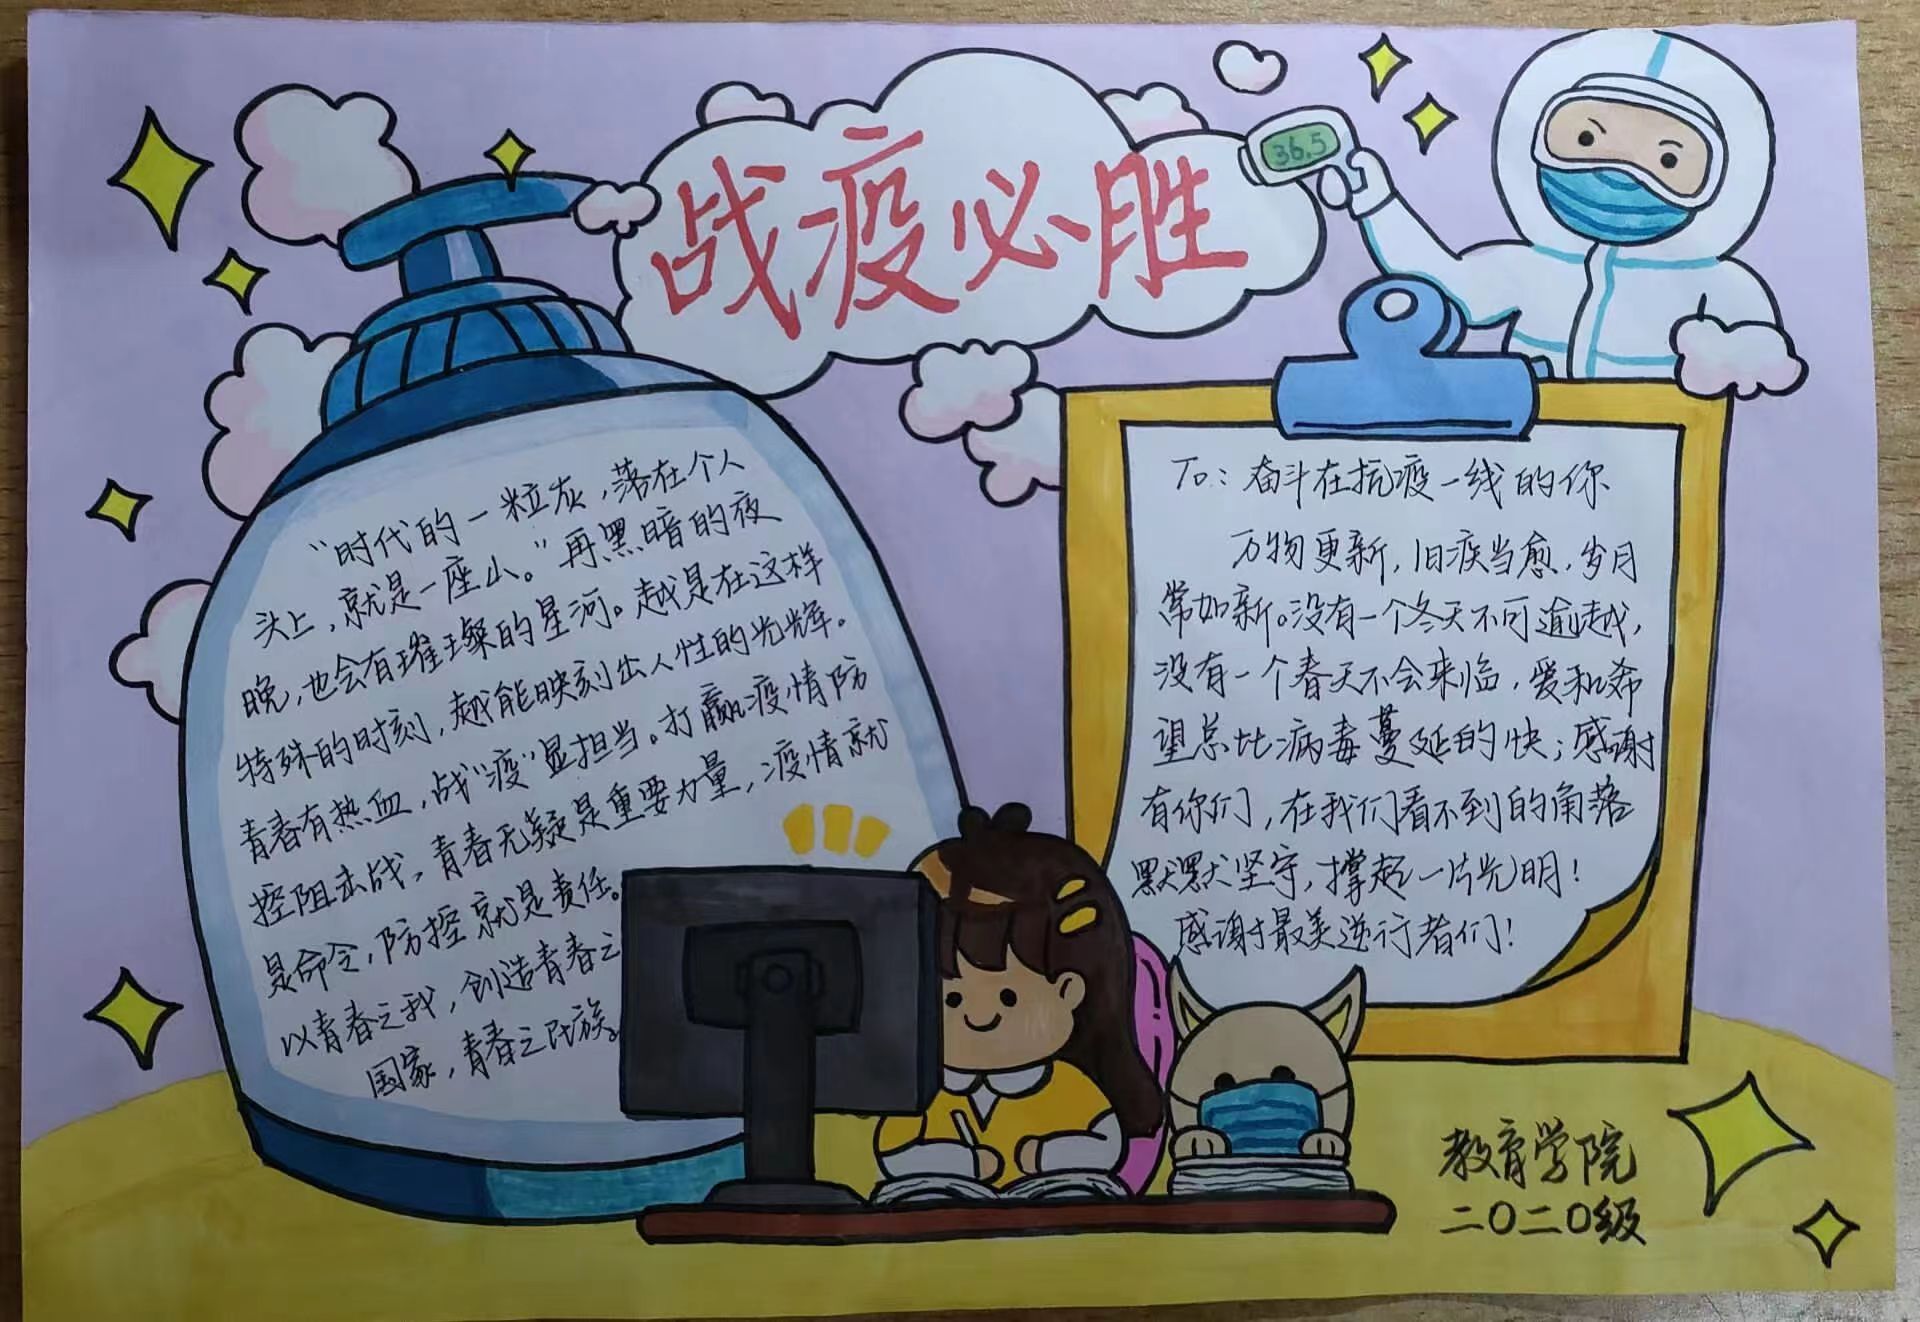 战疫必胜
36.5
“时代的一粒灰，落在个人
头上，就是一座山。”再黑暗的夜
晚，也会有璀璨的星河。越是在这样
特殊的时刻，越能映刻出人性的光辉。
青春有热血，战“疫”显担当。打赢疫情防
控阻击战，青春无疑是重要力量，疫情就
是命令，防控就是责任。
以青春之我，创造青春之
国家，青春之民族。
To：奋斗在抗疫一线的你
万物更新，旧疾当愈，岁月
常如新。没有一个冬天不可逾越，
没有一个春天不会来临，爱和希
望总比病毒蔓延的快；感谢
有你们，在我们看不到的角落
默默坚守，撑起一片光明！
感谢最美逆行者们！
教育学院
二〇二〇级